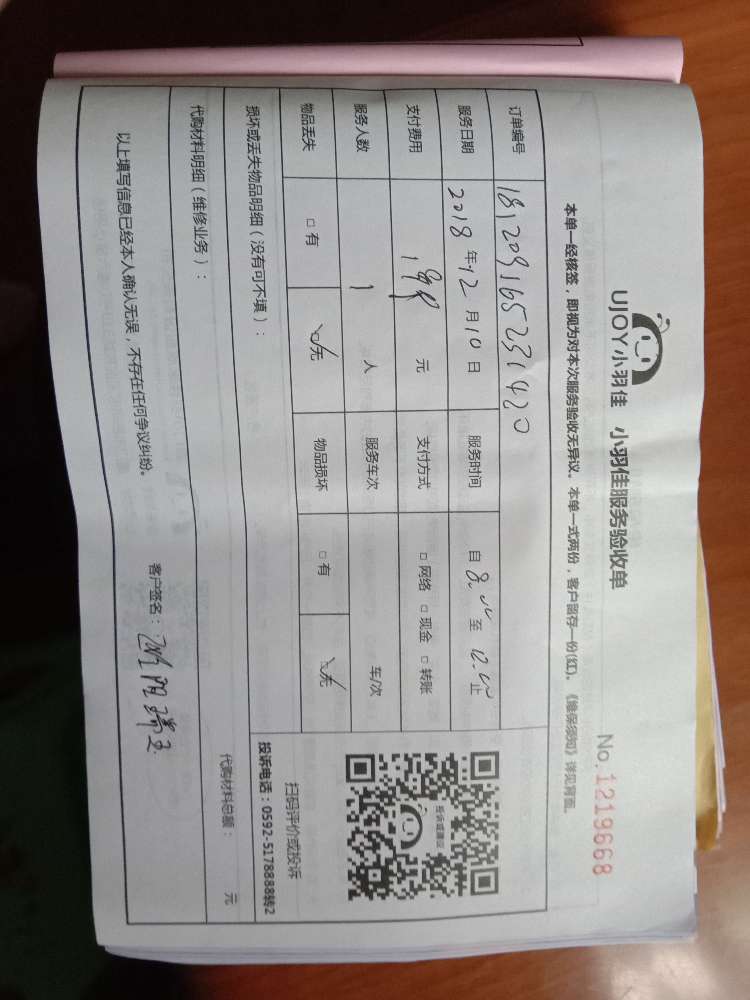 UJOY小羽佳 小羽佳服务验收单
No.1219668
本单一经核签，即视为对本次服务验收无异议。本单一式两份，客户留存一份(红)。《维保须知》详见背面。
订单编号 181209165231420
服务日期 2018年12月10日 服务时间 自8.00至12.00止
支付费用 元 支付方式 □网络 □现金 □转账
服务人数 1人 服务车次 车/次
物品丢失 □有 ☑无 物品损坏 □有 ☑无
投诉或建议
扫码评价或投诉
投诉电话：0592-5178888转2
损坏或丢失物品明细（没有可不填）：
代购材料明细（维修业务）： 代购材料总额： 元
以上填写信息已经本人确认无误，不存在任何争议纠纷。
客户签名：